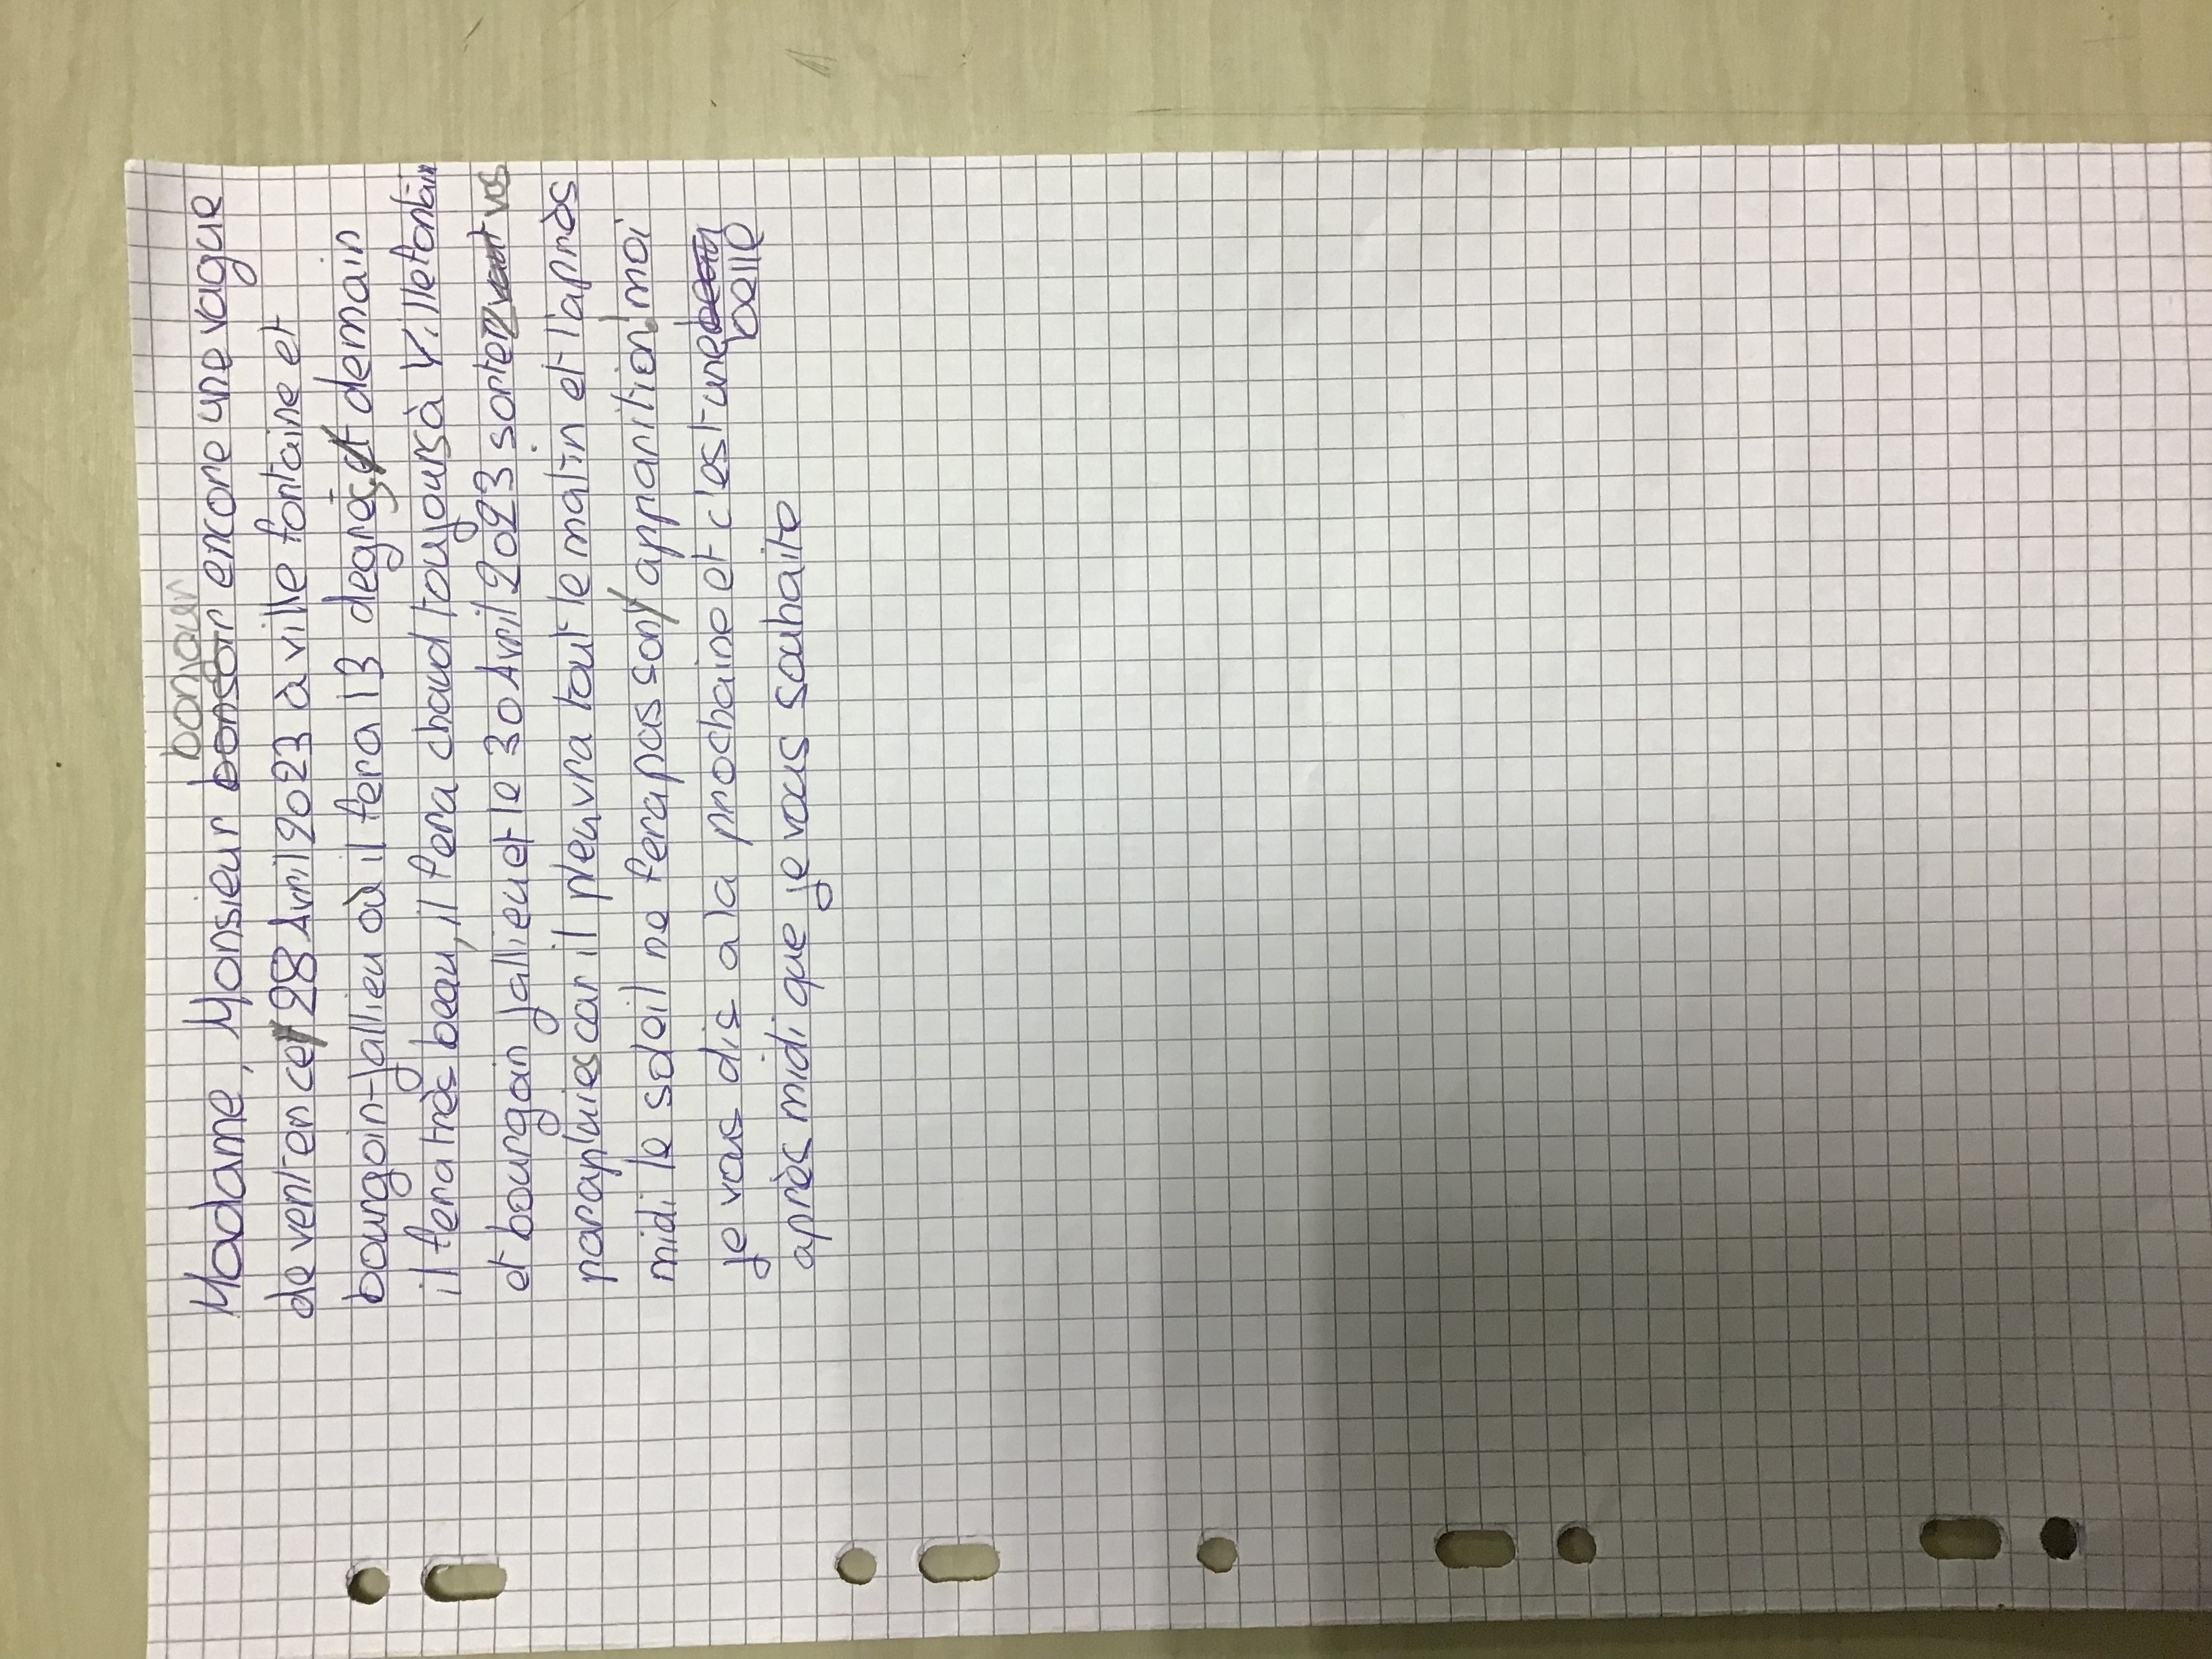 bonjour
Madame, Monsieur bonsoir encore une vague
de vent en ce 28 Avril 2023 à ville fontaine et
bourgoin-jallieu où il fera 13 degrés, et demain
il fera très beau, il fera chaud toujours à Villefontain
et bourgoin jallieu et le 30 Avril 2023 sortez vos
parapluies car il pleuvra tout le matin et l'après
midi le soleil ne fera pas son apparition! moi
je vous dis a la prochaine et c'est une
belle
après midi que je vous souhaite